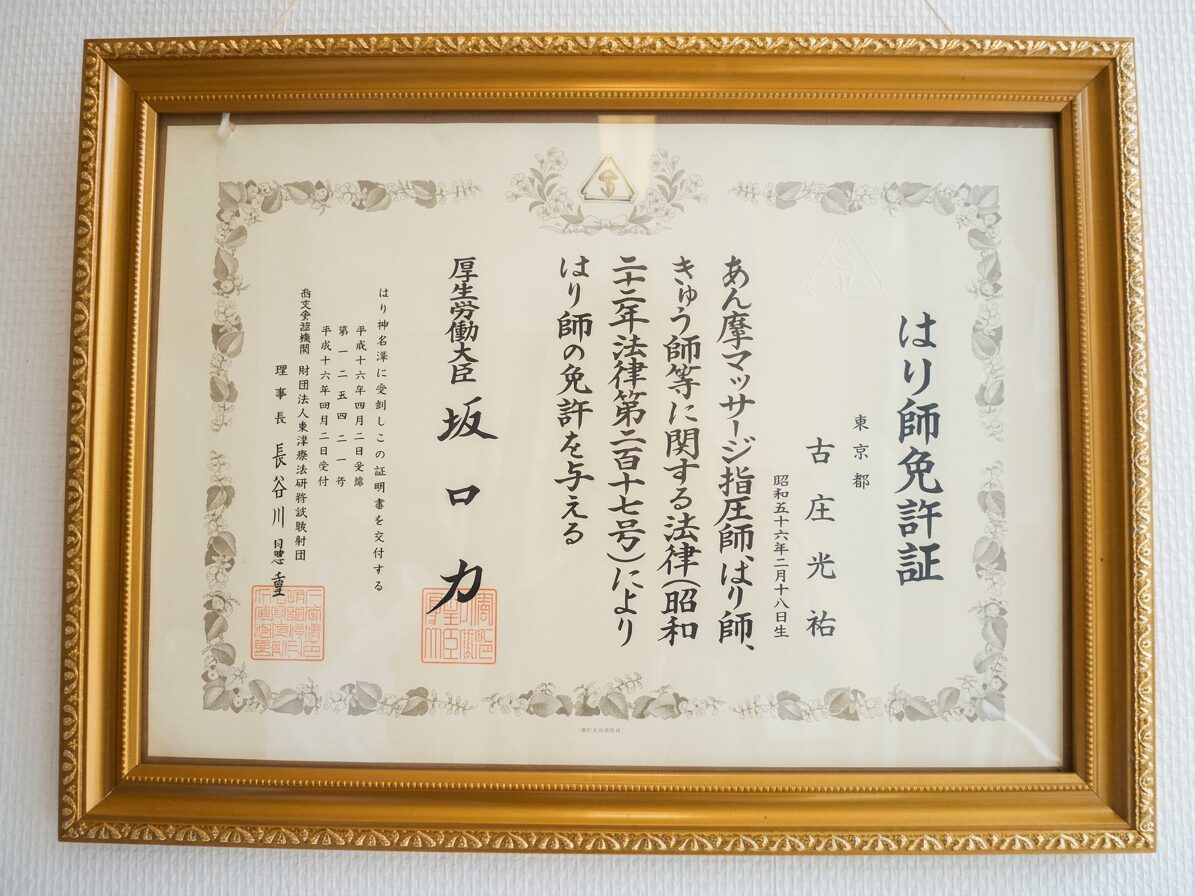 はり師免許証
東京都
古庄光祐
昭和五十六年二月十八日生
あん摩マッサージ指圧師、はり師、
きゅう師等に関する法律(昭和
二十二年法律第二百十七号)により
はり師の免許を与える
厚生労働大臣 坂口力
に受
しこの証明書を交付する
平成十六年四月二日
第一二五四二一号
平成十六年四月二日受付
財団法人東
療法研
試験
財団
理事長 長谷川